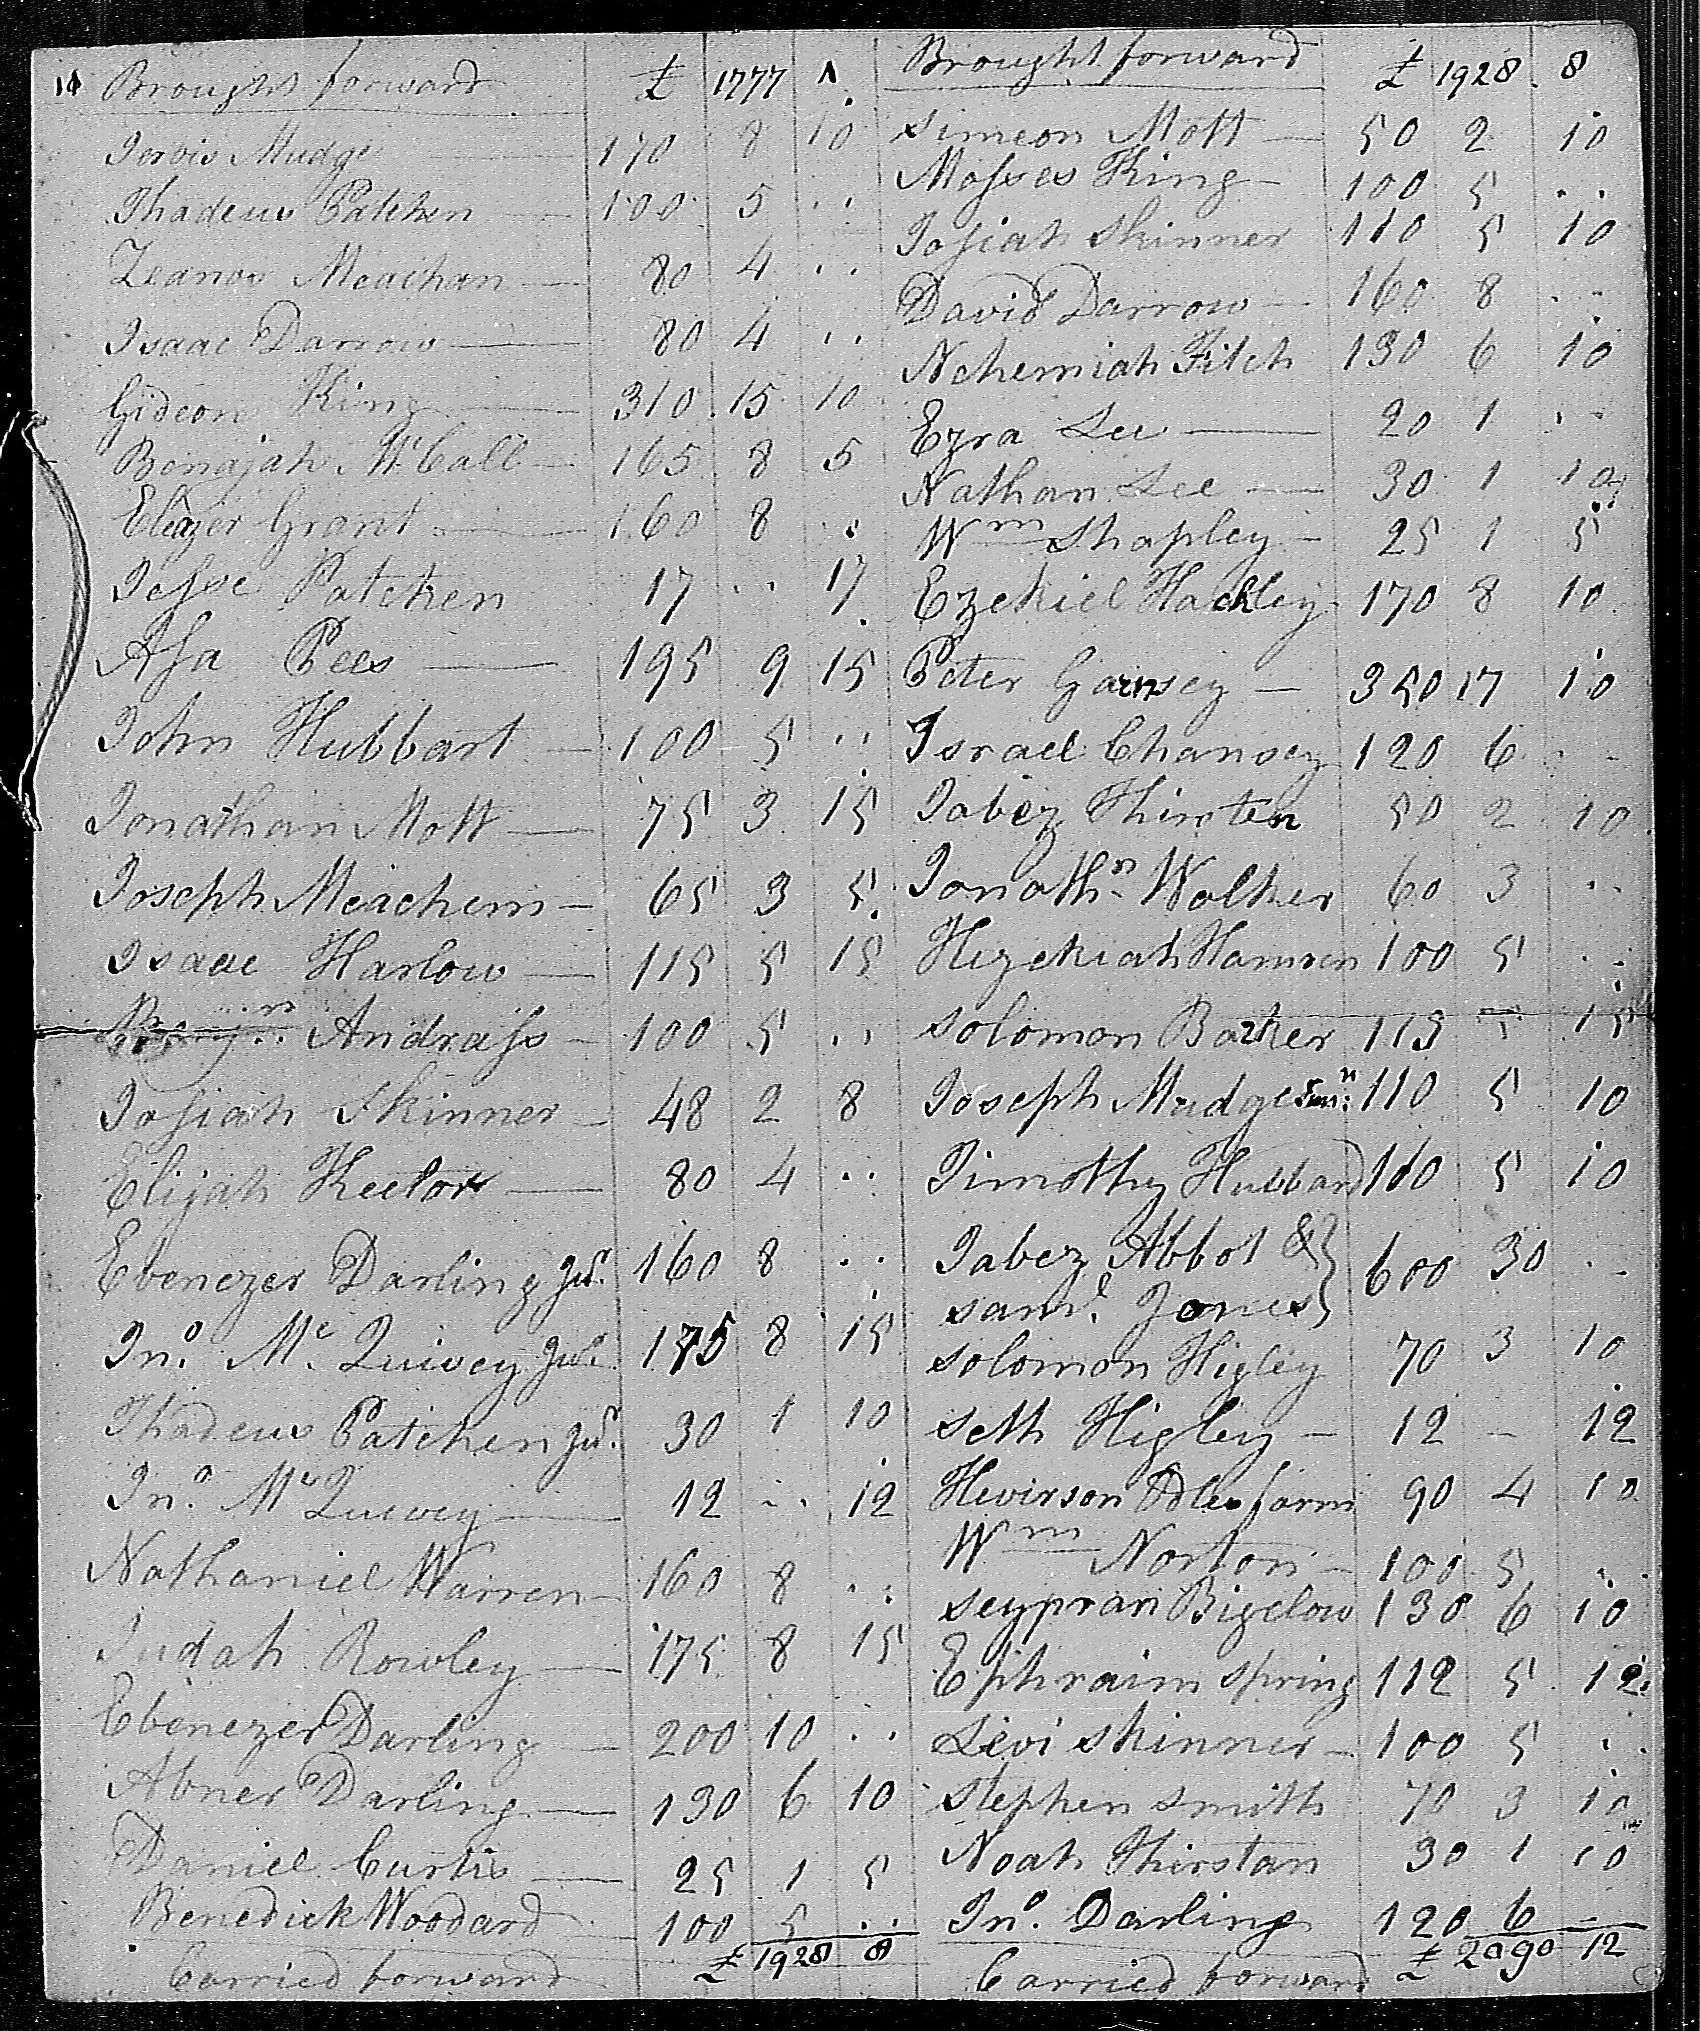 Brought forward £ 1777 1
Jervis Mudge 170 8 10
Thadeus Patchen 100 5 ..
Leanor Meachan 80 4 ..
Isaac Darrow 80 4 ..
Gideon King 310 15 10
Benajah Mc Call 165 8 5
Eleazer Grant 160 8 ..
Jesse Patchen 17 .. 17
Asa Pees 195 9 15
John Hubbart 100 5 ..
Jonathan Mott 75 3 15
Joseph Meachem 65 3 5
Isaac Harlow 115 5 15
Andrass 100 5 ..
Josiah Skinner 48 2 8
Elijah Keeler 80 4 ..
Ebenezer Darling Jur. 160 8 ..
Jno. Mc Quivey Jur. 175 8 15
Thadeus Patchen Jur. 30 1 10
Jno. Mc Quivey 12 .. 12
Nathaniel Warren 160 8 ..
Judah Rowley 175 8 15
Ebenezer Darling 200 10 ..
Abner Darling 130 6 10
Daniel Curtis 25 1 5
Benedick Woodard 100 5 ..
Carried forward £ 1928 8
Brought forward £ 1928 8
Simeon Mott 50 2 10
Mosses King 100 5 ..
Josiah Skinner 110 5 10
David Darrow 160 8 ..
Nehemiah Fitch 130 6 10
Ezra Lee 20 1 ..
Nathan Lee 30 1 10
Wm Shapley 25 1 5
Ezekiel Hackley 170 8 10
Peter Garnsey 350 17 10
Israel Chansey 120 6 ..
Jabez Thirsten 50 2 10
Jonathn. Walker 60 3 ..
Hezekiah Hamren 100 5 ..
Solomon Barker 115 5 15
Joseph Mudge Senr. 110 5 10
Timothy Hubbard 110 5 10
Jabez Abbot & } 600 30 ..
Saml. Jones }
Solomon Higley 70 3 10
Seth Higley 12 - 12
Hevirson farm 90 4 10
Wm Norton 100 5 ..
Seypran Bigelow 130 6 10
Ephraim Spring 112 5 12
Levi Skinner 100 5 ..
Stephen Smith 70 3 10
Noah Thirstan 30 1 10
Jno. Darling 120 6 ..
Carried forward £ 2090 12